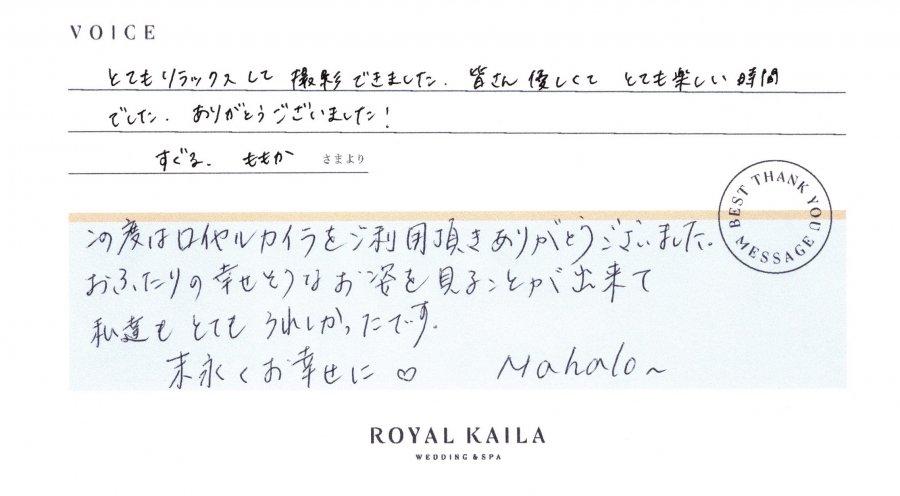 VOICE
とてもリラックスして 撮影できました. 皆さん優しくて とても楽しい時間
でした. ありがとうございました!
すぐる. ももか さまより
BEST THANK YOU MESSAGE
この度はロイヤルカイラをご利用頂きありがとうございました.
おふたりの幸せそうなお姿を見ることが出来て
私達も とても うれしかったです.
末永くお幸せに♡ Mahalo〜
ROYAL KAILA
WEDDING & SPA